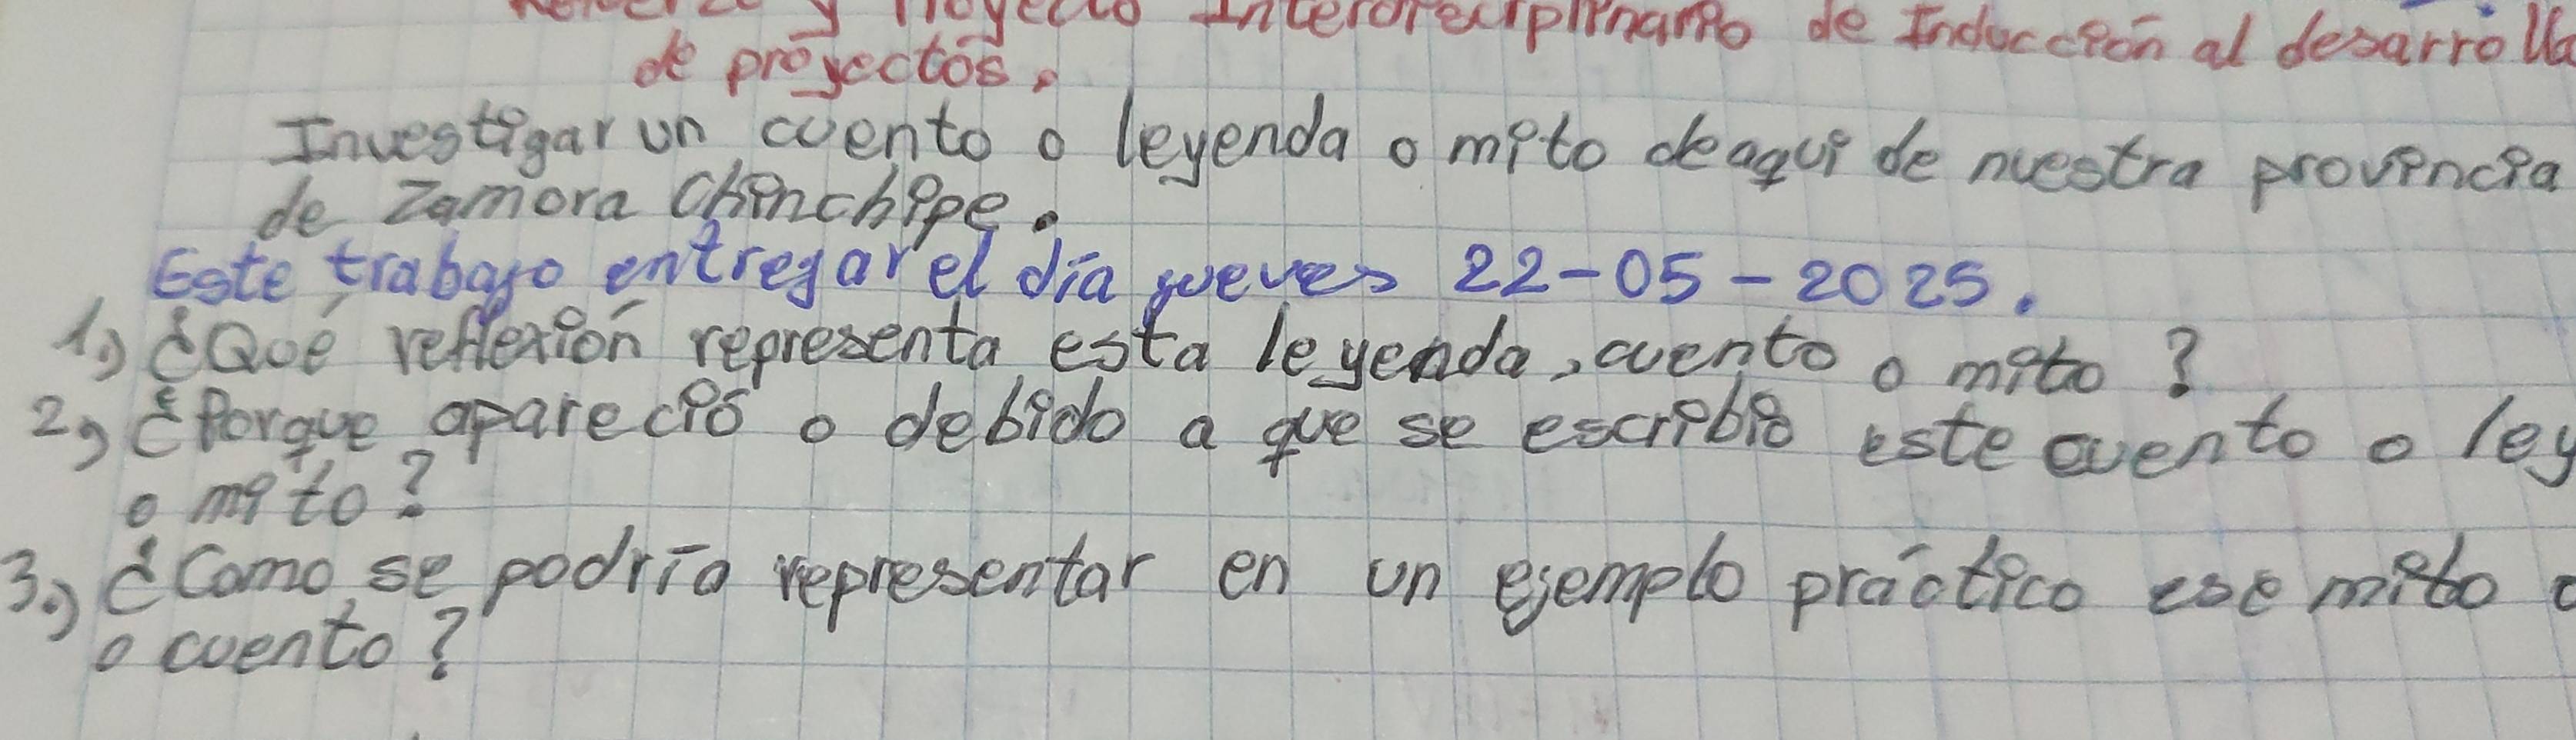 Refuerzo y Proyecto Interdisciplinario de Inducción al desarrollo
de proyectos,
Investigar un cuento o leyenda o mito de aqui de nuestra provincia
de Zamora Chinchipe.
Este trabajo entregar el día jueves 22-05-2025.
1.) ¿Qué reflexión representa esta leyenda, cuento o mito?
2,) ¿Porque apareció o debido a que se escribió este cuento o ley
o mito?
3.) ¿Como se podría representar en un ejemplo práctico ese mito o
o cuento?